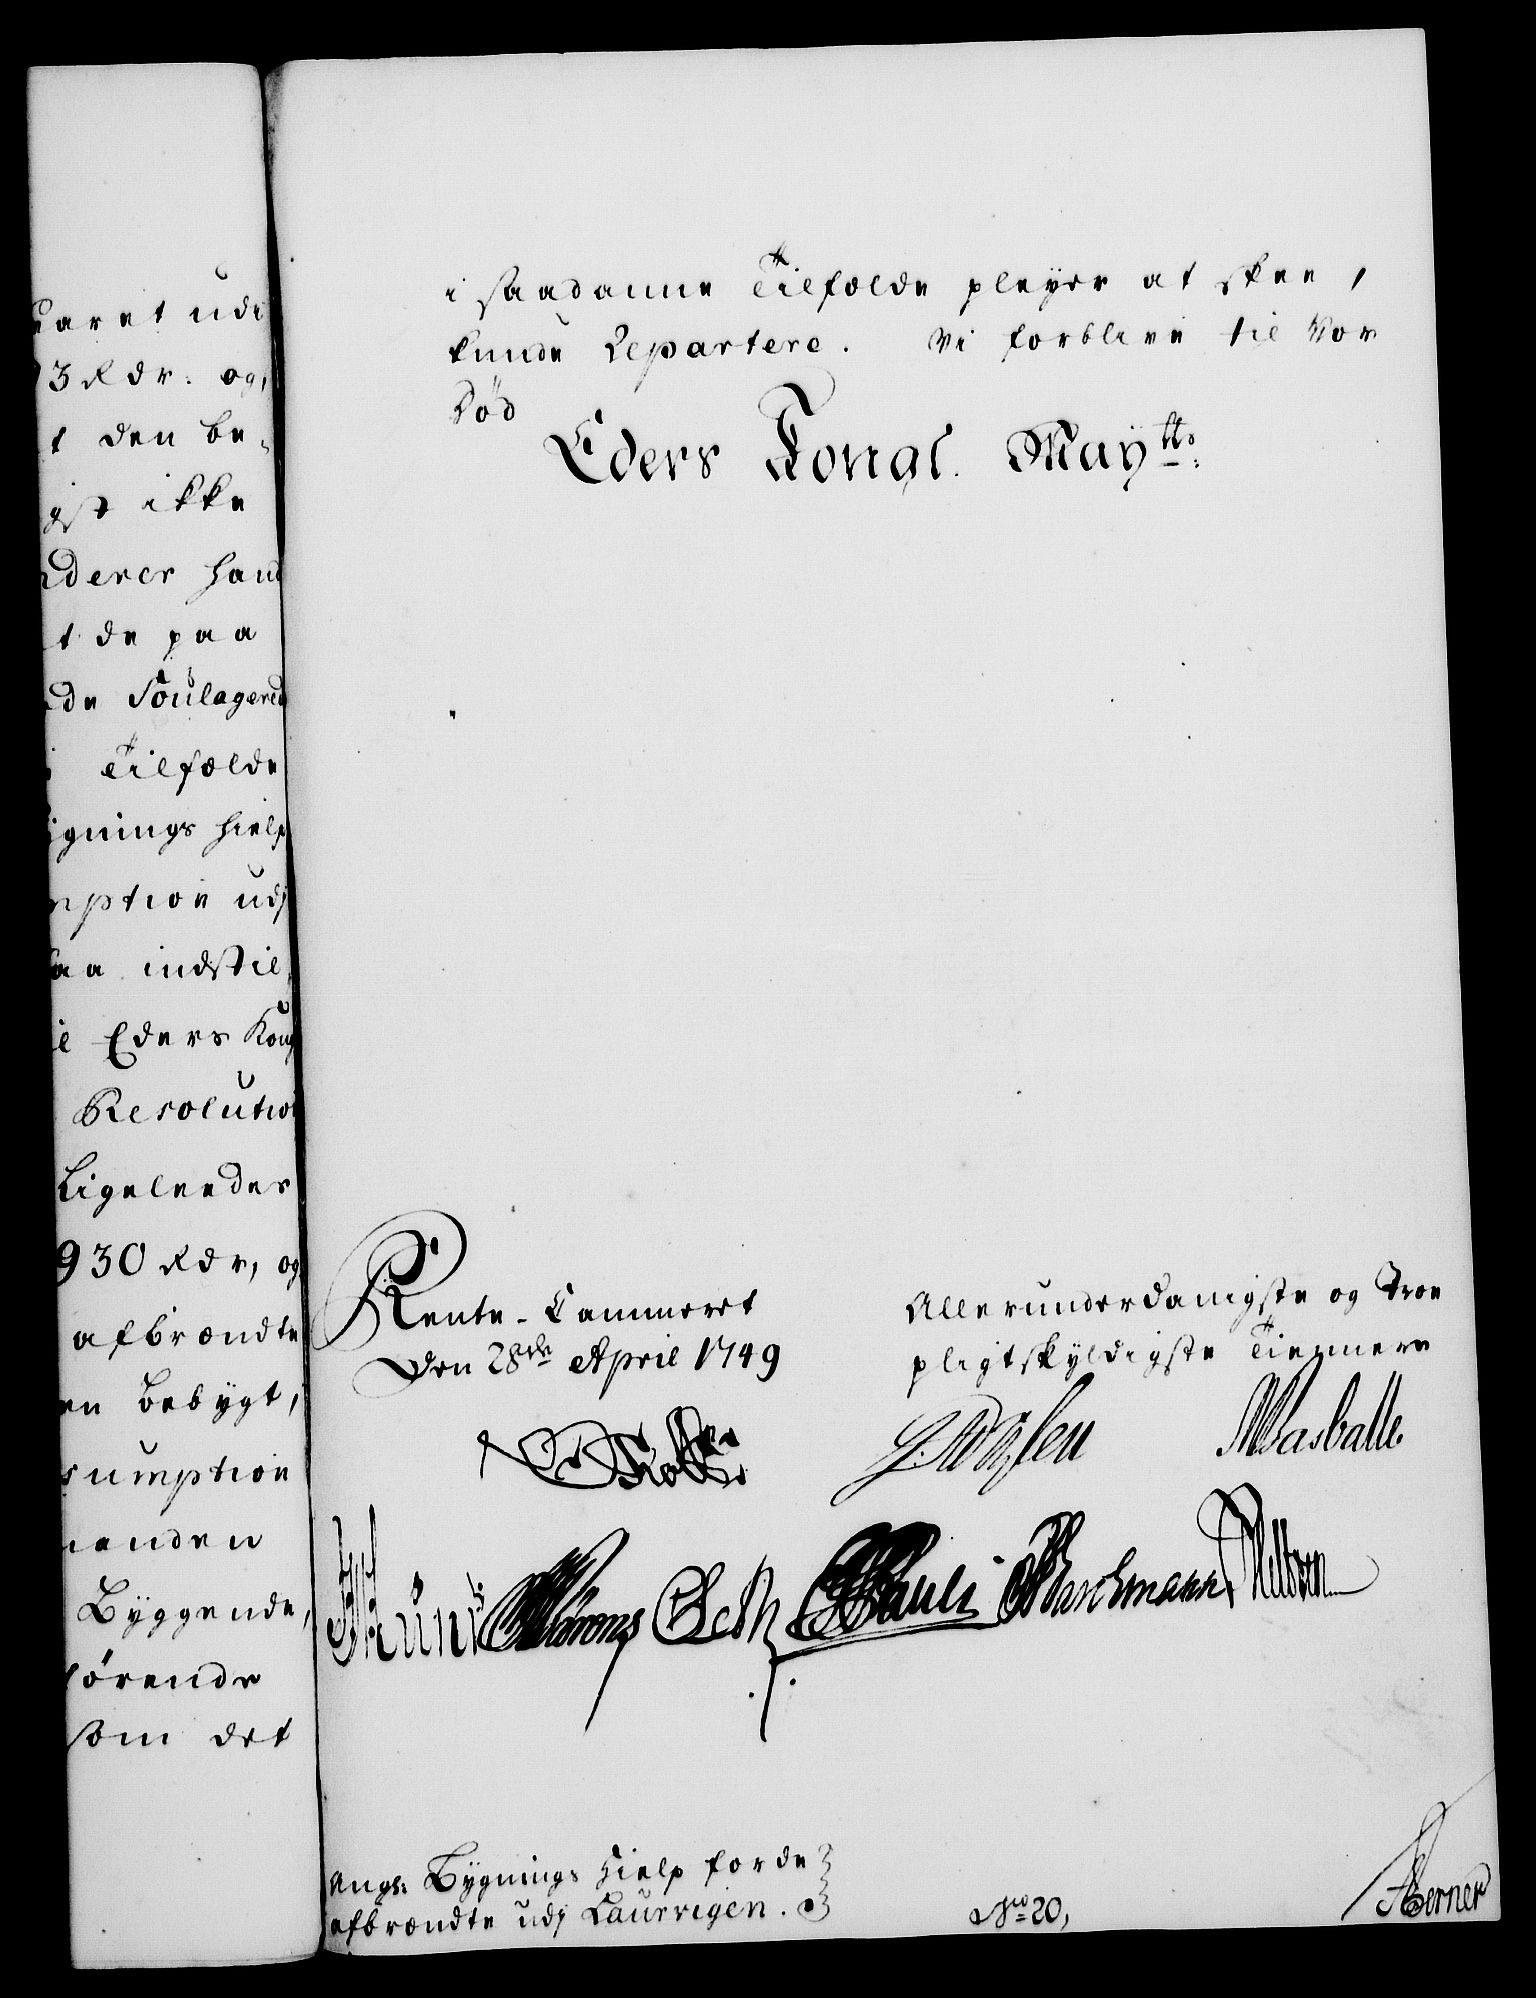 uaret udi
3 Rdr. og,
t den be-
gst ikke
derer hand
t de paa
de Soulagered
Tilfælde
ignings Hielp
mption udj
aa indstil,
il Eders Kong
Resolution
Ligeleedes
930 Rdr, og
afbrændte
en bebygt,
sumption
ienden
Byggende,
hörende
som det
i saadanne Tilfælde pleyer at skee,
kunde Repartere. Vi forblive til Vor
Död
Eders Kongl. May<sup>tts</sup>.
Rente-Cammeret
Den 28de April 1749
Allerunderdanigste og Troe
pligtskyldigste Tiennere
Holst
Masballe
Pauli
Angl: Bygnings Hielp for de
afbrændte udj Laurvigen.
No 20,
Berner